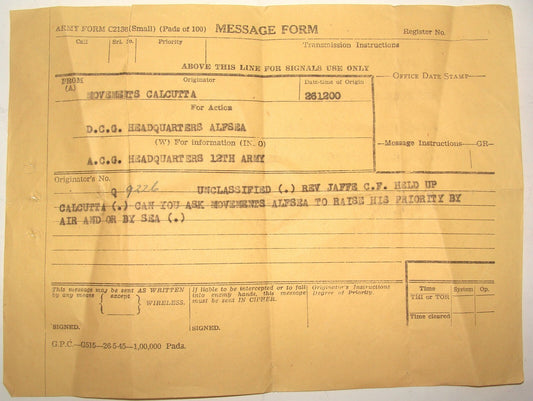 ARMY FORM C2136(Small) (Pads of 100) MESSAGE FORM Register No.
Call Srl. No. Priority Transmission Instructions
ABOVE THIS LINE FOR SIGNALS USE ONLY
FROM (A) Originator Date-time of Origin Office Date Stamp
MOVEMENTS CALCUTTA 261200
For Action
D.C.G. HEADQUARTERS ALFSEA
(W) For information (INFO)
Message Instructions GR
A.C.G. HEADQUARTERS 12TH ARMY
Originator's No.
Q 9226 UNCLASSIFIED (.) REV JAFFE C.F. HELD UP
CALCUTTA (.) CAN YOU ASK MOVEMENTS ALFSEA TO RAISE HIS PRIORITY BY
AIR AND OR BY SEA (.)
This message may be sent AS WRITTEN
by any means (except) WIRELESS.
SIGNED.
If liable to be intercepted or to fall
into enemy hands, this message
must be sent IN CIPHER.
SIGNED.
Originator's Instructions
Degree of Priority.
Time System Op.
THI or TOR
Time cleared
G.P.C.—G515—26-5-45—1,00,000 Pads.